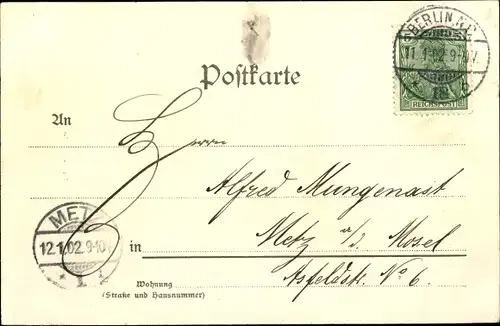 BERLIN.N.
11.1.02.9-10V.
REICHSPOST
Postkarte
An
Herrn
Alfred Mungenast
METZ
12.1.02.9-10V.
in
Metz a/d. Mosel
Asfeldstr. No 6.
Wohnung
(Straße und Hausnummer)